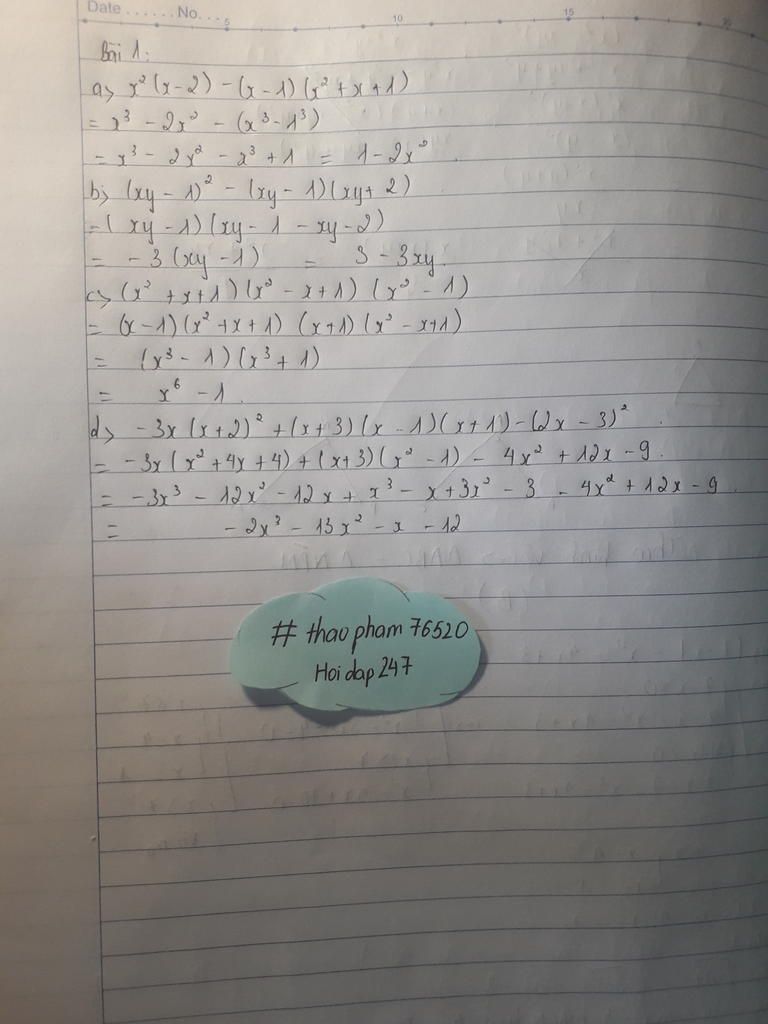 Date ...... No. ...
5 10 15 20
Bài 1:
a> x²(x-2) - (x-1)(x²+x+1)
= x³ - 2x² - (x³-1³)
= x³ - 2x² - x³ + 1 = 1-2x².
b> (xy-1)² - (xy-1)(xy+2)
= (xy-1)(xy-1-xy-2)
= -3(xy-1) = 3-3xy.
c> (x²+x+1)(x²-x+1)(x²-1)
= (x-1)(x²+x+1)(x+1)(x²-x+1)
= (x³-1)(x³+1)
= x⁶-1.
d> -3x(x+2)² + (x+3)(x-1)(x+1) - (2x-3)².
= -3x(x²+4x+4) + (x+3)(x²-1) - 4x² + 12x - 9.
= -3x³ - 12x² - 12x + x³ - x + 3x² - 3 - 4x² + 12x - 9.
= -2x³ - 13x² - x - 12
# thaopham76520
Hoidap247